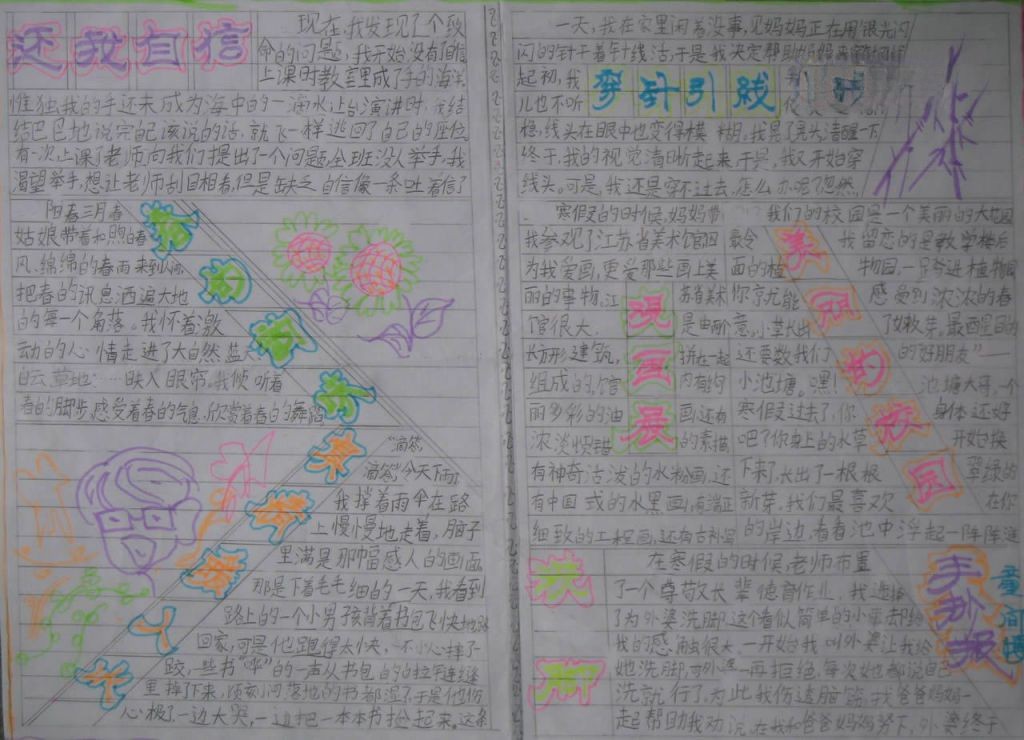 还我自信
现在,我发现了个致
命的问题,我开始没有自信
上课时教室里成了手的海洋
惟独我的手还未成为海中的一滴水让台演讲时,我结
结巴巴地说完自己该说的话,就飞一样逃回了自己的座位
有一次上课了老师向我们提出了一个问题,全班没人举手,我
渴望举手,想让老师刮目相看,但是缺乏自信像一条吐着信了
阳春三月春
姑娘带着和煦的春
风、绵绵的春雨来到人间
把春的讯息洒遍大地
的每一个角落。我怀着激
动的心情走进了大自然蓝天
白云草地……映入眼帘。我倾听着
春的脚步,感受着春的气息,欣赏着春的舞蹈
乐于助人
“滴答,
滴答”今天下雨,
我撑着雨伞在路
上慢慢地走着,脑子
里满是那幅感人的画面
那是下着毛毛细的一天,我看到
路上的一个小男孩背着书包飞快地
回家,可是他跑得太快,不小心摔了
跤,些书“哗”的一声从书包的拉链缝
里摔下来,顷刻间落地的书都湿了,于是他伤
心极了一边大哭,一边把一本本书捡起来。这条
一天,我在家里闲着没事,见妈妈正在用银光闪
闪的针干着针线活,于是我决定帮助妈妈
起初,我
穿针引线
儿也不听
稳,线头在眼中也变得模糊,我晃了晃头清醒一下
终于,我的视觉清晰起来,于是,我又开始穿
线头。可是,我还是穿不过去,怎么办呢?忽然
寒假的时候,妈妈带
我参观了江苏省美术馆因
为我爱画,更爱那些画上美
丽的事物,江苏省美术
馆很大,是由两个
长方形建筑,拼在一起
组成的,馆内有绚
丽多彩的油画还有
浓淡恰错的素描
有神奇活泼的水粉画,还
有中国式的水墨画,有端正
细致的工程画,还有古朴
观画展
我们的校园是一个美丽的大花园
最令我留恋的是教学楼后
面的植物园,一足夸进植物园
你就能感受到浓浓的春
意,小草长出了嫩芽,最西星目的
还要数我们的好朋友”——
小池塘。嘿!池塘大哥,个
寒假过去了,你身体还好
吧?你身上的水草开始换
下来了,长出了一根根翠绿的
新芽,我们最喜欢在你
的岸边,看着池中浮起一阵阵涟
美丽的校园
洗脚
在寒假的时候,老师布置
了一个尊敬长辈德育作业,我选择
了为外婆洗脚,这个看似简单的小事却给
我的感触很大。一开始我叫外婆让我给
她洗脚,外婆一再拒绝,每次她都说自己
洗就行了,为此我伤透脑筋,找爸爸妈妈一
起帮助我劝说,在我和爸爸妈妈努下,外婆终于
手抄报